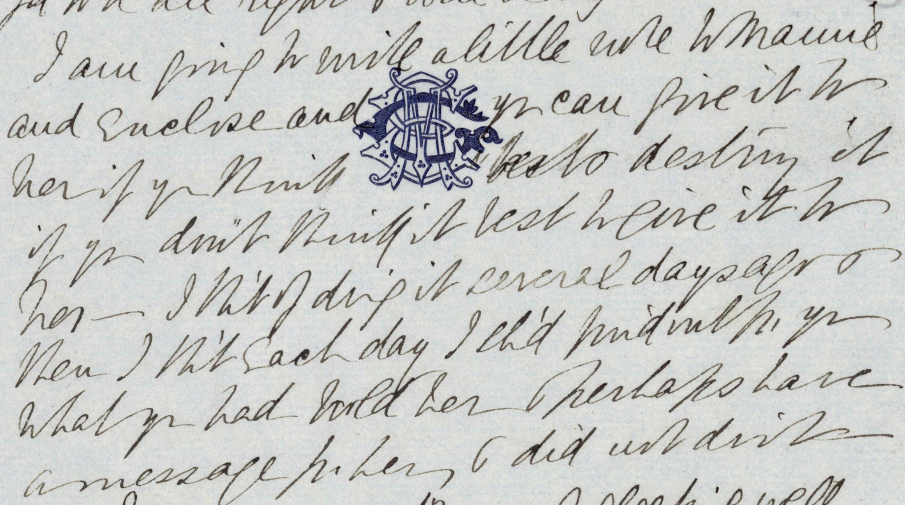 I am going to write a little note to Mamie
and enclose and yr can give it to
her if yr think best to destroy it
if yr don't think it best to give it to
her — I th't of doing it several days ago &
then I th't each day I sh'd find out fr. yr
what yr had told her & perhaps have
a message fr. her, & did not do it —